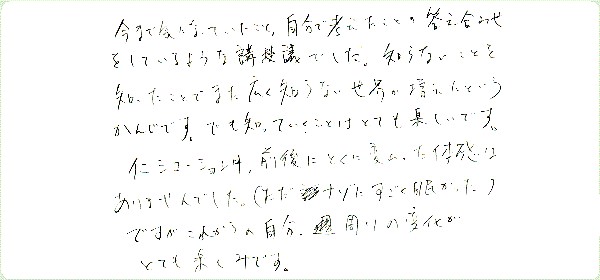 今まで気になっていたこと、自分で考えたことの答え合わせ
をしているような講議でした。知らないことを
知ったことでまた広く知らない世界が増えたという
かんじです。でも知っていくことはとても楽しいです。
イニシエーションは、前後にとくに変わった体感は
ありませんでした。(ただナゾにすごく眠かった)
ですがこれからの自分、周りの変化が
とても楽しみです。